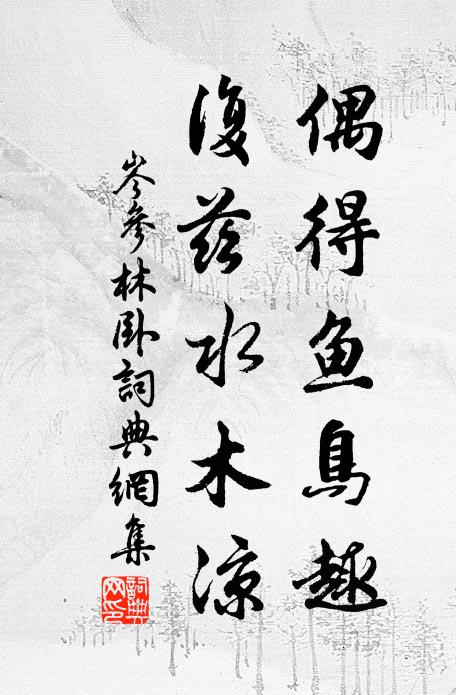 偶得鱼鳥趣
復茲水木涼
岑參林臥詞典網集
詞典网印